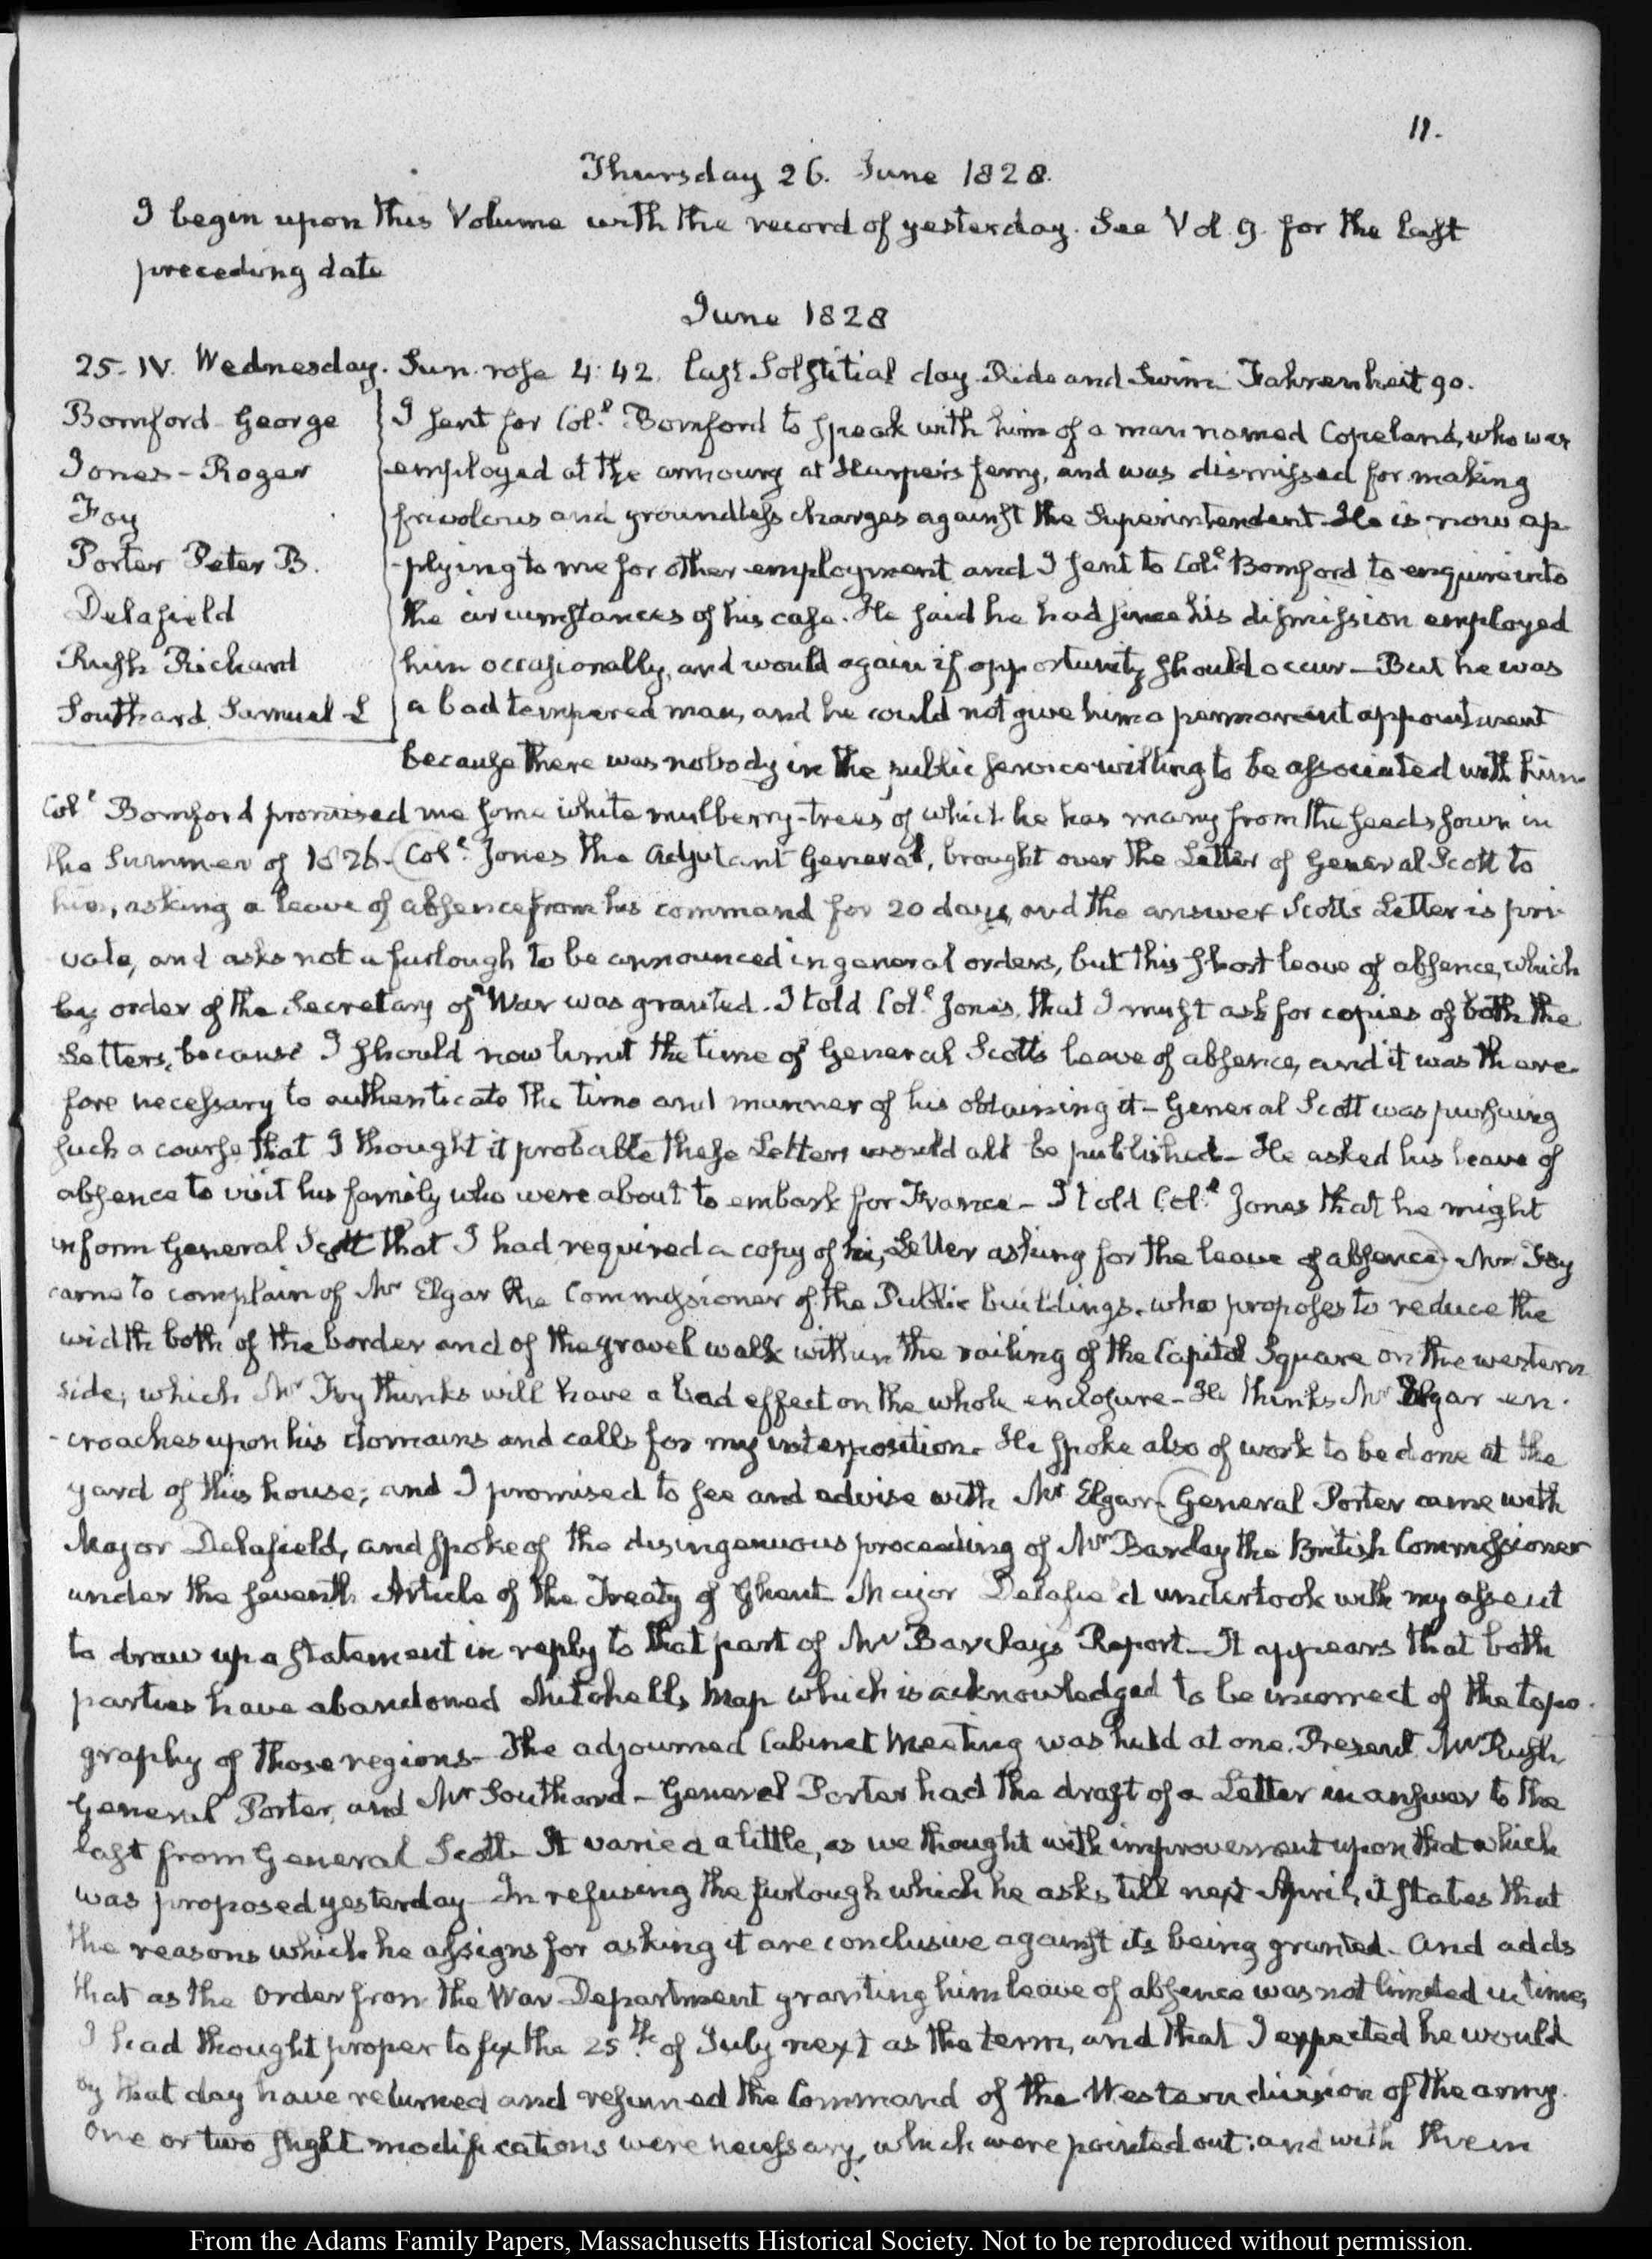 11.
Thursday 26. June 1828.
I begin upon this Volume with the record of yesterday. See Vol. 9. for the last
preceding date
June 1828
25. IV. Wednesday. Sun rose 4:42. last Solstitial day. Ride and Swim. Fahrenheit 90.
Bomford George
Jones - Roger
Foy
Porter Peter B.
Delafield
Rush Richard
Southard Samuel L
I sent for Coll. Bomford to speak with him of a man named Copeland, who was
employed at the armoury at Harper's ferry, and was dismissed for making
frivolous and groundless charges against the Superintendent. He is now ap-
-plying to me for other employment and I sent to Coll. Bomford to enquire into
the circumstances of his case. He said he had since his dismission employed
him occasionally, and would again if opportunity should occur — But he was
a bad tempered man, and he could not give him a permanent appointment
because there was nobody in the public service willing to be associated with him
Coll Bomford promised me some white mulberry-trees of which he has many from the seeds sown in
the Summer of 1826. Coll. Jones the Adjutant General, brought over the Letter of General Scott to
him, asking a leave of absence from his command for 20 days, and the answer Scott's Letter is pri-
vate, and asks not a furlough to be announced in general orders, but this short leave of absence, which
by order of the Secretary of War was granted. I told Coll. Jones, that I must ask for copies of both the
Letters, because I should now limit the time of General Scott's leave of absence, and it was there-
fore necessary to authenticate the time and manner of his obtaining it — General Scott was pursuing
such a course that I thought it probable these Letters would all be published — He asked his leave of
absence to visit his family who were about to embark for France — I told Coll. Jones that he might
inform General Scott that I had required a copy of his Letter asking for the leave of absence. Mr Foy
came to complain of Mr Elgar the Commissioner of the Public buildings. who proposes to reduce the
width both of the border and of the gravel walk within the railing of the Capitol Square on the western
side; which Mr Foy thinks will have a bad effect on the whole enclosure — He thinks Mr Elgar en-
-croaches upon his domains and calls for my interposition. He spoke also of work to be done at the
yard of this house; and I promised to see and advise with Mr Elgar. General Porter came with
Major Delafield, and spoke of the disingenuous proceeding of Mr Barclay the British Commissioner
under the seventh Article of the Treaty of Ghent. Major Delafield undertook with my assent
to draw up a statement in reply to that part of Mr Barclay's Report — It appears that both
parties have abandoned Mitchell's Map which is acknowledged to be incorrect of the topo-
graphy of those regions — The adjourned Cabinet Meeting was held at one. Present Mr Rush,
General Porter, and Mr Southard — General Porter had the draft of a Letter in answer to the
last from General Scott. It varied a little, as we thought with improvement upon that which
was proposed yesterday — In refusing the furlough which he asks till next April, it states that
the reasons which he assigns for asking it are conclusive against its being granted. And adds
that as the Order from the War Department granting him leave of absence was not limited in time,
I had thought proper to fix the 25th. of July next as the term, and that I expected he would
by that day have returned and resumed the Command of the Western division of the army.
One or two slight modifications were necessary, which were pointed out: and with them
From the Adams Family Papers, Massachusetts Historical Society. Not to be reproduced without permission.